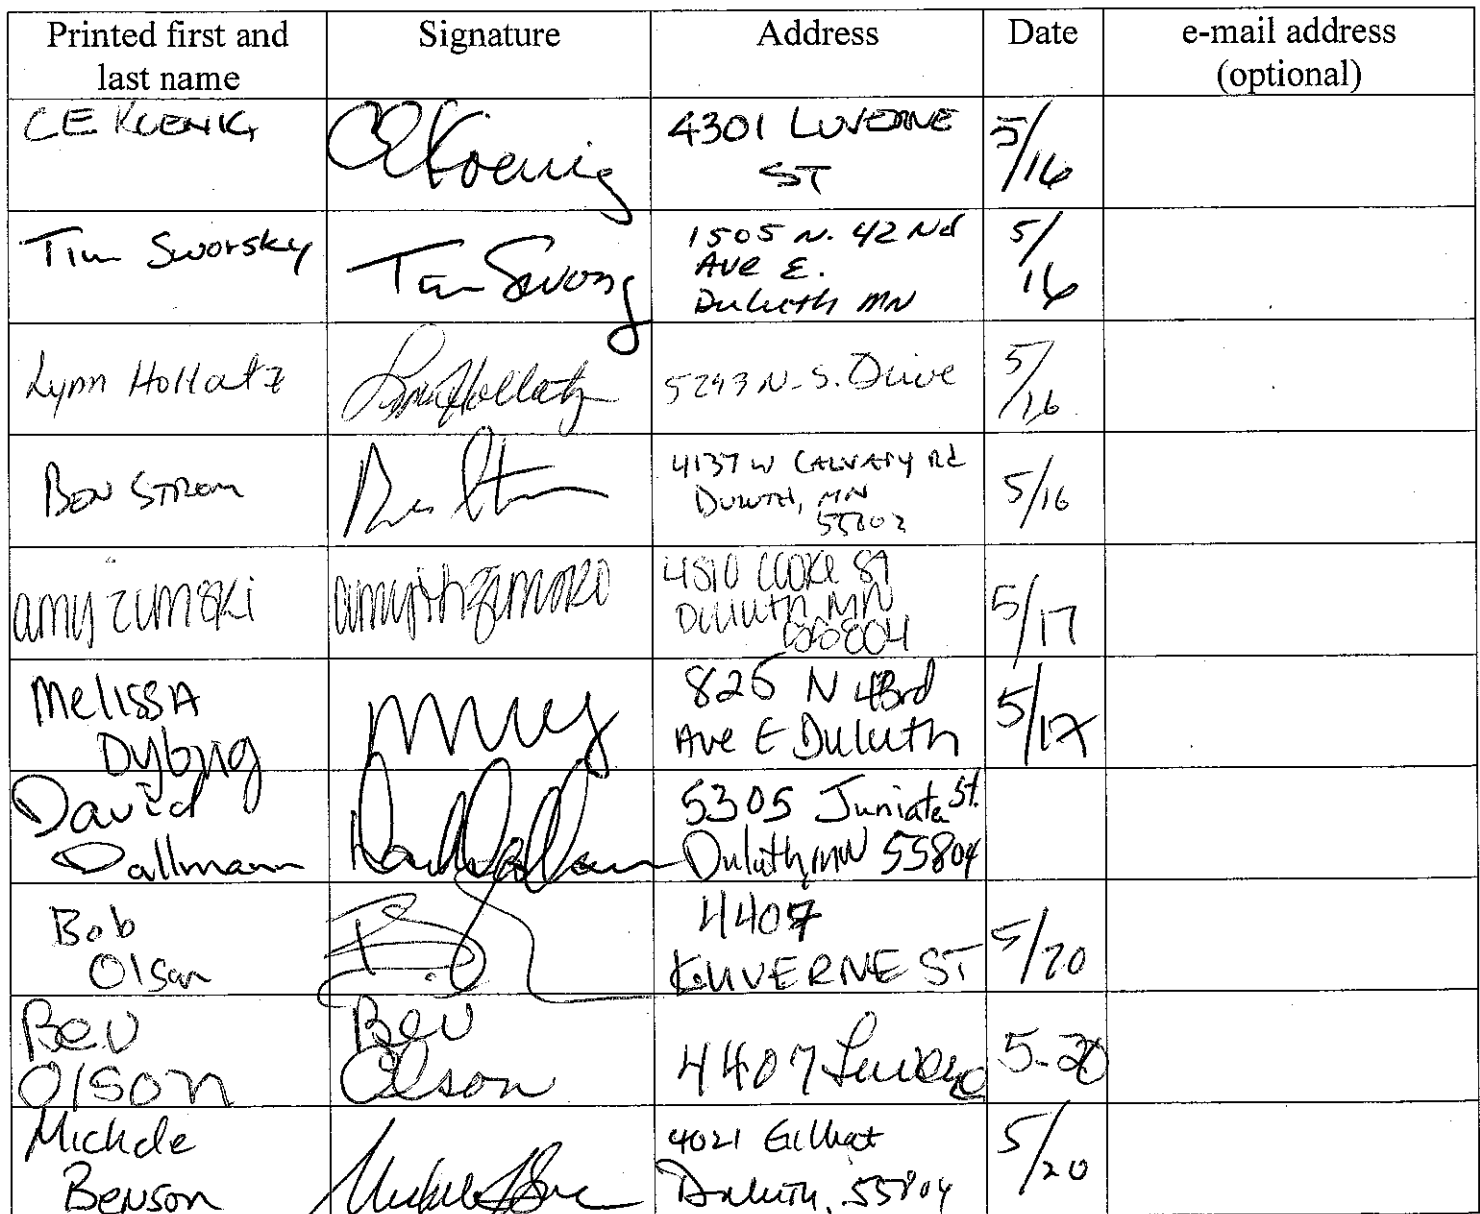 Printed first and last name Signature Address Date e-mail address (optional)
CE KOENIG CE Koenig 4301 LUVERNE ST 5/16
Tim Sworsky Tim Swors 1505 N. 42nd Ave E. Duluth MN 5/16
Lynn Hollatz Lynn Hollatz 5293 N. S. Drive 5/16
BEN STROM Ben Strom 4137 W CALVARY Rd DULUTH, MN 55803 5/16
amy zimski 4810 COOKE ST DULUTH MN 55804 5/17
MELISSA Dybvig 825 N 43rd Ave E Duluth 5/17
David Dallmann David Dallmann 5305 Juniata St. Duluth MN 55804
Bob Olson 4407 LUVERNE ST 5/20
Bev Olson Bev Olson 4407 Luverne 5-20
Michele Benson 4021 Gilliat Duluth, 55804 5/20